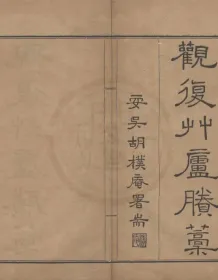 觀復艸廬賸藁
安吳胡樸庵署耑